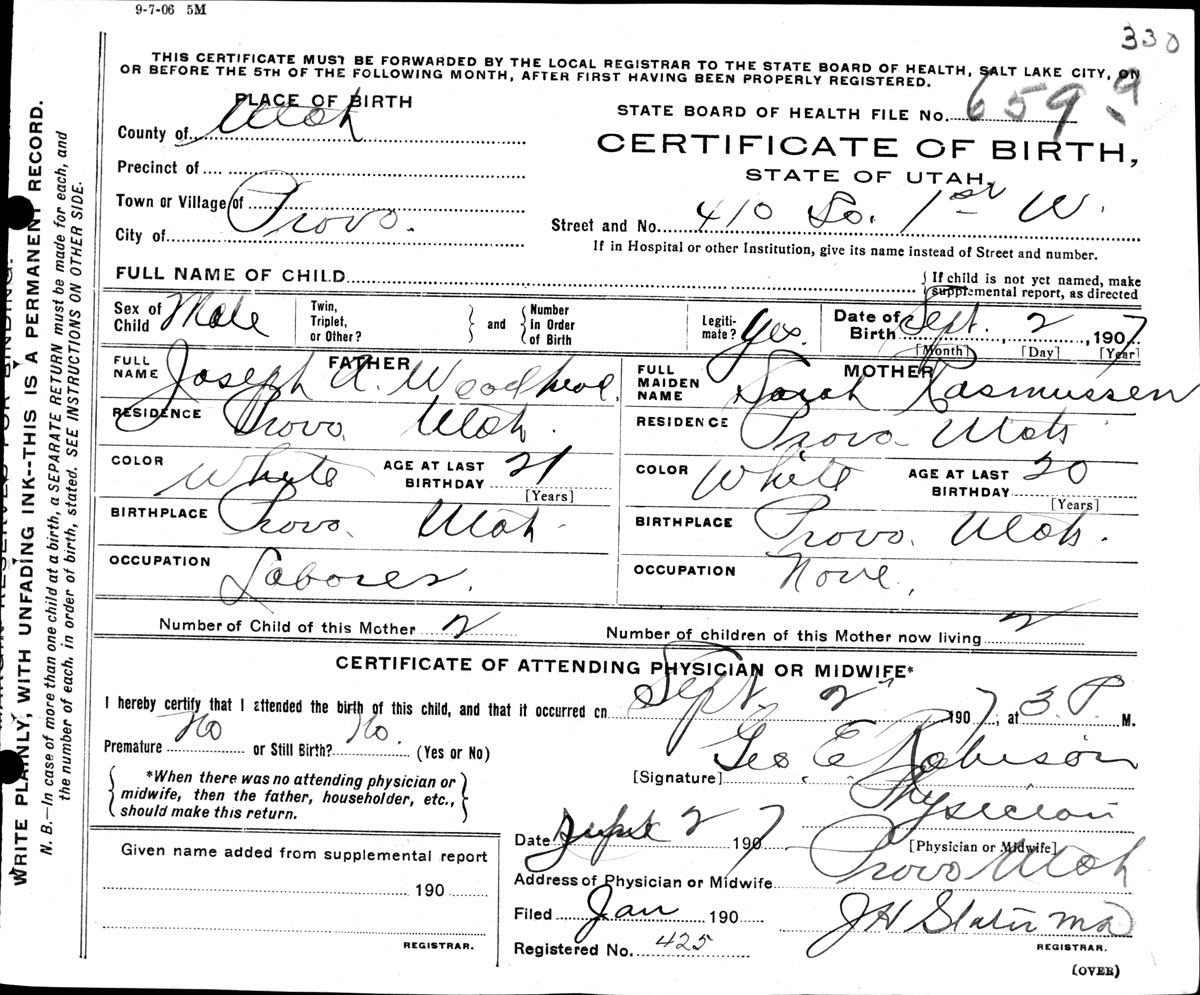 9-7-06 5M
330
THIS CERTIFICATE MUST BE FORWARDED BY THE LOCAL REGISTRAR TO THE STATE BOARD OF HEALTH, SALT LAKE CITY, ON
OR BEFORE THE 5TH OF THE FOLLOWING MONTH, AFTER FIRST HAVING BEEN PROPERLY REGISTERED.
PLACE OF BIRTH
County of Utah
Precinct of
Town or Village of Provo.
City of
STATE BOARD OF HEALTH FILE No. 659
CERTIFICATE OF BIRTH,
STATE OF UTAH.
Street and No. 410 So. 1st W.
If in Hospital or other Institution, give its name instead of Street and number.
FULL NAME OF CHILD
If child is not yet named, make
supplemental report, as directed
Sex of Child Male
Twin, Triplet, or Other?
and
Number in Order of Birth
Legiti- mate? Yes.
Date of Birth Sept. 2, 1907
[Month] [Day] [Year]
FATHER
FULL NAME Joseph
RESIDENCE Provo. Utah.
COLOR White AGE AT LAST BIRTHDAY 21
[Years]
BIRTHPLACE Provo. Utah.
OCCUPATION Laborer.
MOTHER
FULL MAIDEN NAME Sarah Rasmussen
RESIDENCE Provo. Utah
COLOR White AGE AT LAST BIRTHDAY 20
[Years]
BIRTHPLACE Provo. Utah.
OCCUPATION None.
Number of Child of this Mother 2 Number of children of this Mother now living 2
CERTIFICATE OF ATTENDING PHYSICIAN OR MIDWIFE*
I hereby certify that I attended the birth of this child, and that it occurred on Sept. 2" 1907, at 3 P. M.
Premature No or Still Birth? No. (Yes or No)
*When there was no attending physician or
midwife, then the father, householder, etc.,
should make this return.
[Signature] Geo E Robison
Physician
[Physician or Midwife]
Date Sept 2 1907
Address of Physician or Midwife Provo Utah
Filed Jan 190
Registered No. 425
J H Slater MD
REGISTRAR.
(OVER)
Given name added from supplemental report
190
REGISTRAR.
WRITE PLAINLY, WITH UNFADING INK--THIS IS A PERMANENT RECORD.
N. B.—In case of more than one child at a birth, a SEPARATE RETURN must be made for each, and
the number of each, in order of birth, stated. SEE INSTRUCTIONS ON OTHER SIDE.